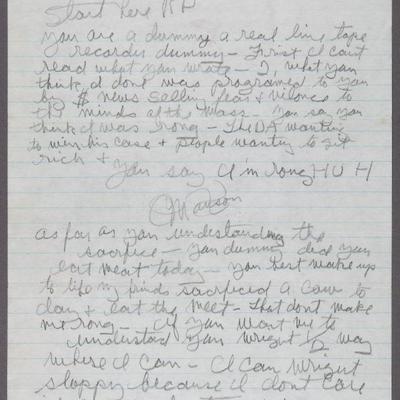 Start here RP
you are a dummy a real live tape
recorder dummy - First I can't
read what you wrote - 2, what you
think I done was programed to you
by $ news selling fear & vilonce to
the minds of the mass - you say you
think I was rong - The DA wanting
to win his case & people wanting to get
rich &
you say I'm rong HUH
Manson
as far as you understanding the
sacrifice - you dummy did you
eat meat today - you best wake up
to life my kinds sacrificed a cow to
day & eat the meet - that dont make
me rong - If you want me to
understad you wright 1/2 way
where I can - I can wright
sloppy because I dont care